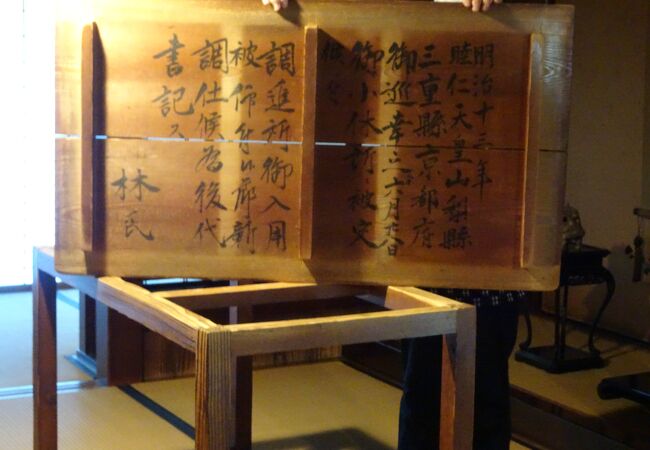 明治十三年
睦仁天皇山梨縣
三重縣京都府
御巡幸之六月廿八日
御小休所被定
調進所御入用
被仰
新
調仕候為後代
書記ス
林氏